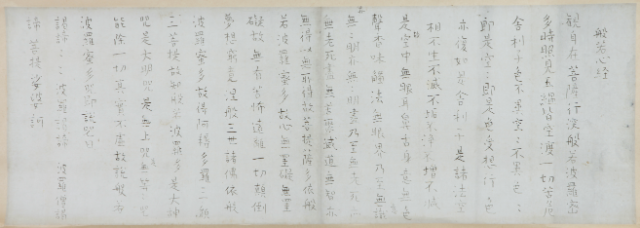 般若心経
観自在菩薩行深般若波羅蜜
多時照見五蘊皆空度一切苦厄
舍利子色不異空々不異色々
即是空々即是色受想行識
亦復如是舍利子是諸法空
相不生不滅不垢不淨不增不減
是空中無眼耳鼻舌身意無色
聲香味觸法無眼界乃至無識
無々明亦無々明盡乃至無老死
無老死盡無苦集滅道無智亦
無得以無所得故菩提薩多依般
若波羅蜜多故心無罣礙無罣
礙故無有恐怖遠離一切顛倒
夢想究竟涅般三世諸佛依般
波羅蜜多故得阿耨多羅三藐
三菩提故知般若波羅多是大神
呪是大明呪是無上呪無等々
能除一切真實不虛故説般若
波羅蜜多呪即說呪曰
揭諦々々波羅揭諦 波羅僧揭
諦菩提娑婆訶